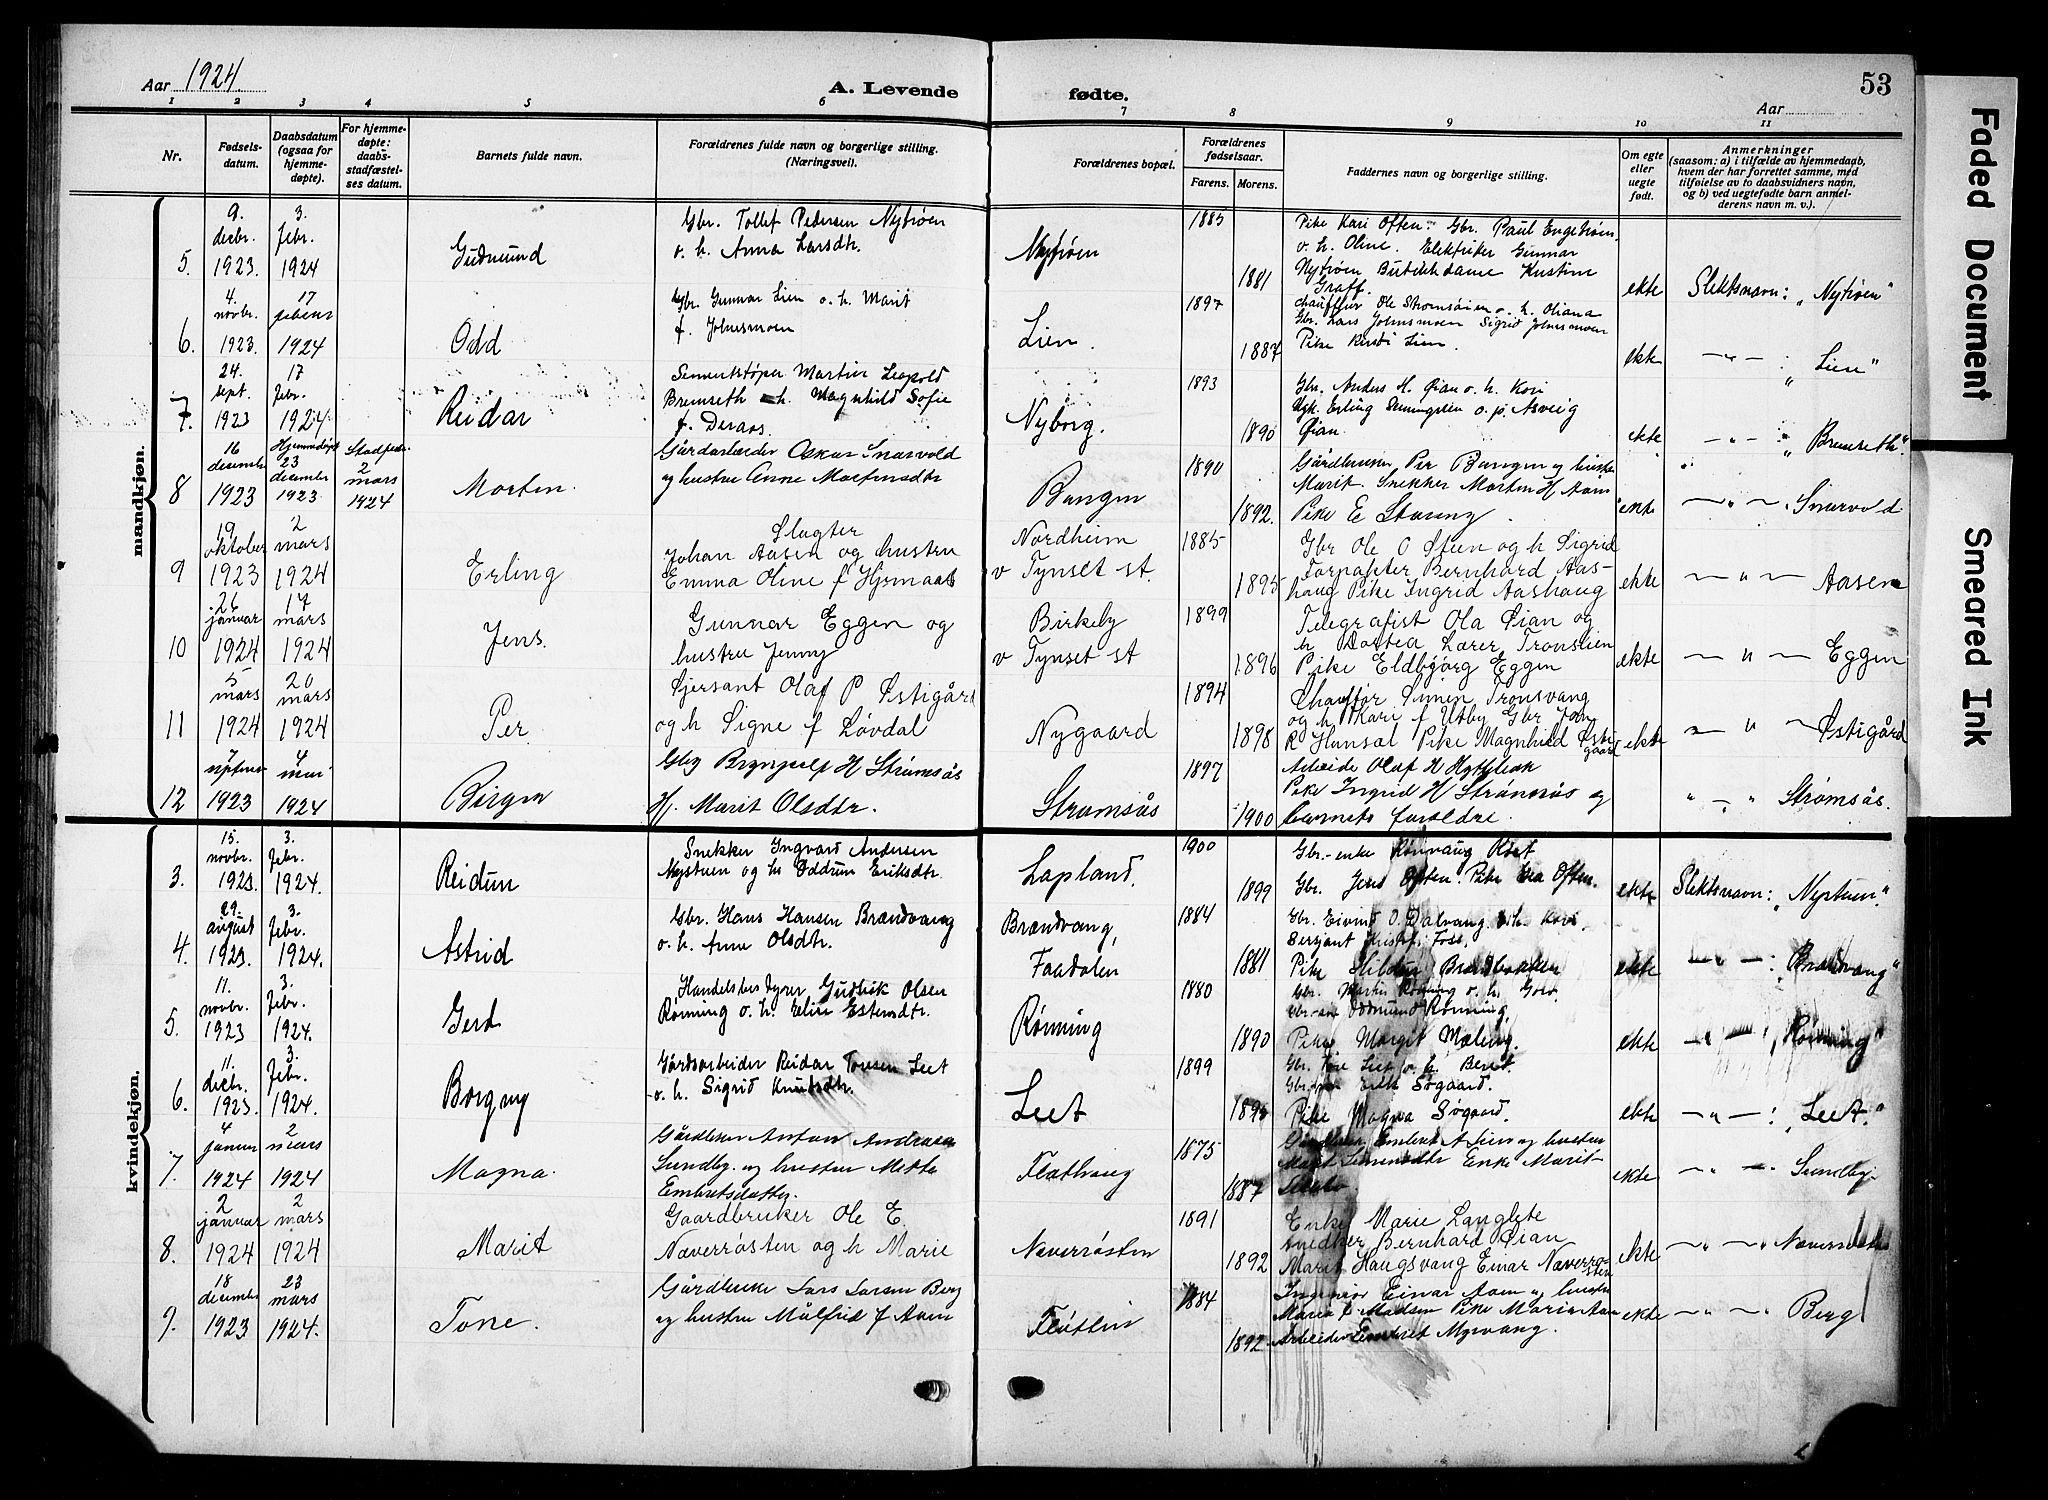 Aar 1924. A. Levende fødte. Aar 53
1 2 3 4 5 6 7 8 9 10 11
Nr. Fødsels-datum. Daabsdatum (ogsaa for hjemme-døpte). For hjemme-døpte: daabs-stadfæstel-ses datum. Barnets fulde navn. Forældrenes fulde navn og borgerlige stilling. (Næringsvei). Forældrenes bopæl. Forældrenes fødselsaar. Farens. Morens. Faddernes navn og borgerlige stilling. Om egte eller uegte født. Anmerkninger (saasom: a) i tilfælde av hjemmedaab, hvem der har forrettet samme, med tilføielse av to daabsvidners navn, og b) ved uegtefødte barn anmel-derens navn m. v.).
mandkjøn.
5. 9. desbr. 1923. 3. febr. 1924 Gudmund Gbr. Tollef Pedersen Nytrøen o. h. Anna Larsdtr. Nytrøen 1885 1881 Pike Kari Often. Gbr. Paul Engstrøm o. h. Oline. Elektriker Gunnar Nytrøen Butikkdame Kristine Graff. ekte Slektsnavn: „Nytrøen"
6. 4. novbr. 1923. 17 1924 Odd Gbr. Gunnar Lien o. h. Marit f. Johnsmoen Lien. 1897 1887 Chauffeur Ole Strømsøien o. h. Oliana Gbr. Lars Johnsmoen Sigrid Johnsmoen Pike Lien. ekte — „ — : „Lien"
7. 24. sept. 1923 17 febr. 1924. Reidar Sementstøper Martin Leopold Bremseth o. h. Magnhild Sofie f. Deraas. Nyborg. 1893 1890 Gbr. Anders H. Øian o. h. Kari Erling o. p. Asveig Øian. ekte — „ — „Bremseth"
8 16 desember 1923 Hjemmedøpt 23 desember 1923 Stadfestet 2 mars 1924 Morten. Gårdarbeider Oskar Snærvold og hustru Anne Mortensdtr Bangen 1890 1892. Gårdbruker Per Bangen og hustru Marit. Snekker Morten H Aam Pike E Storeng. ekte — „ — Snærvold
9 19 oktober 1923 2 mars 1924 Erling Slagter Johan Aasen og hustru Emma Oline f Hjemaas Nordheim v Tynset st. 1885 1895 Gbr Ole O Steen og h Sigrid Forpagter Bernhard Aashaug Pike Ingrid Aashaug ekte — „ — Aasen
10 26 januar 1924 17 mars 1924 Jens. Gunnar Eggen og hustru Jenny Birkeby v Tynset st 1899 1896 Telegrafist Ola Øian og h Dortea Lærer Tronslien Pike Eldbjørg Eggen ekte — „ — Eggen
11 5 mars 1924 20 mars 1924 Per Sjersant Olaf P Østigård og h Signe f Løvdal Nygaard 1894 1898 Chauffør Simen Tronsvang og h Kari f Utby Gbr Jon R Hansæl Pike Magnhild Østigaard ekte — „ — Østigård
12 7 1923 4 mai 1924 Birger Gbr Brynjulf H Strømsås H. Marit Olsdtr. Strømsås 1897 1900 Arbeider Olaf H Hyttebak Pike Ingrid H Strømsås og barnets foreldre. „ — „ Strømsås.
kvindekjøn.
3. 15. novbr. 1923. 3. febr. 1924. Reidun Snekker Ingvard Andersen Nystuen og h. Oddrun Eriksdtr. Lapland. 1900 1899 Gbr.-enke Rønnaug Røst Gbr. Jens Often. Pike Often. ekte Slektsnavn: „Nystuen"
4. 29. august 1923. 3. febr. 1924. Astrid Gbr. Hans Hansen Brandvang o. h. Anne Olsdtr. Brandvang, Faadalen 1884 1881 Gbr. Eivind O. Dalvang o. h. Kari. Sersjant Kristof. Foss. Pike Hilda Brandbakken ekte — „ — : „Brandvang"
5. 11. novbr. 1923 3. febr. 1924. Gerd Handelsbestyrer Gudlik Olsen Rønning o. h. Elise Estensdtr. Rønning 1880 1890 Gbr. Martin Rønning o. h. Goro. Oddmund Rønning. Pike Margit Mæleng. ekte — „ — „Rønning"
6. 11. desbr. 1923. 3. febr. 1924. Borgny Gårdsarbeider Reidar Toresen Leet o. h. Sigrid Knutsdtr. Leet 1899 Gbr. Tore Leet o. h. Beret. Erik Søgaard. Pike Magna Søgaard. ekte — „ — : „Leet."
7. 4 januar 1924 2 mars 1924 Magna. Gårdbruker Anton Andreasen Sundby og hustru Mette Embretsdatter. Flathaug 1875 1887 Gårdbruker Embret A Lien og hustru Marit Enke Marit ekte — „ — Sundby
8. 2 januar 1924 2 mars 1924 Marit Gaardbruker Ole E. Næverrøsten og h Marie Næverrøsten 1891 1892 Enke Marie Langlete Snedker Bernhard Øian Marit Haugsvang Einar Næverrøsten ekte — „ — „ Næverrøsten
9. 18 desember 1923 23 mars 1924. Tone. Gårdbruker Lars Larsen Berg og hustru Målfrid f Aaen Fløtten 1884 1892 Ingeniør Einar Aaen og hustru Maria f Madsen Pike Maria Aaen Arbeider Embret Myrvang. ekte — „ — „ Berg
Faded Document
Smeared Ink